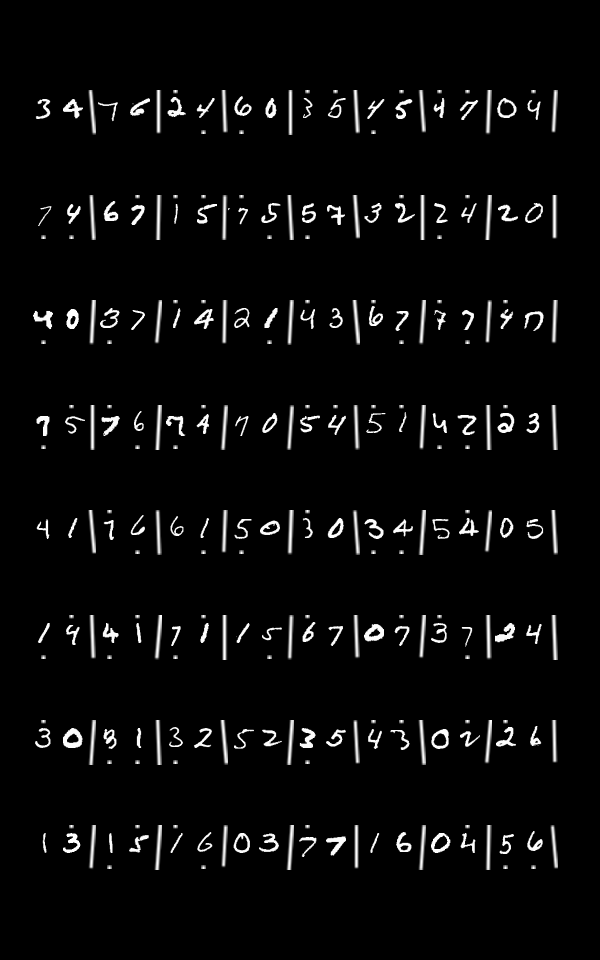 3 4 | 7 6 | 2 4 | 6 0 | 3 5 | 4 5 | 4 7 | 0 4 |
7 4 | 6 7 | 1 5 | 7 5 | 5 7 | 3 2 | 2 4 | 2 0 |
4 0 | 3 7 | 1 4 | 2 1 | 4 3 | 6 7 | 7 7 | 4 0 |
7 5 | 7 6 | 7 4 | 7 0 | 5 4 | 5 1 | 4 2 | 2 3 |
4 1 | 7 6 | 6 1 | 5 0 | 3 0 | 3 4 | 5 4 | 0 5 |
1 4 | 4 1 | 7 1 | 1 5 | 6 7 | 0 7 | 3 7 | 2 4 |
3 0 | 3 1 | 3 2 | 5 2 | 3 5 | 4 3 | 0 2 | 2 6 |
1 3 | 1 5 | 1 6 | 0 3 | 7 7 | 1 6 | 0 4 | 5 6 |